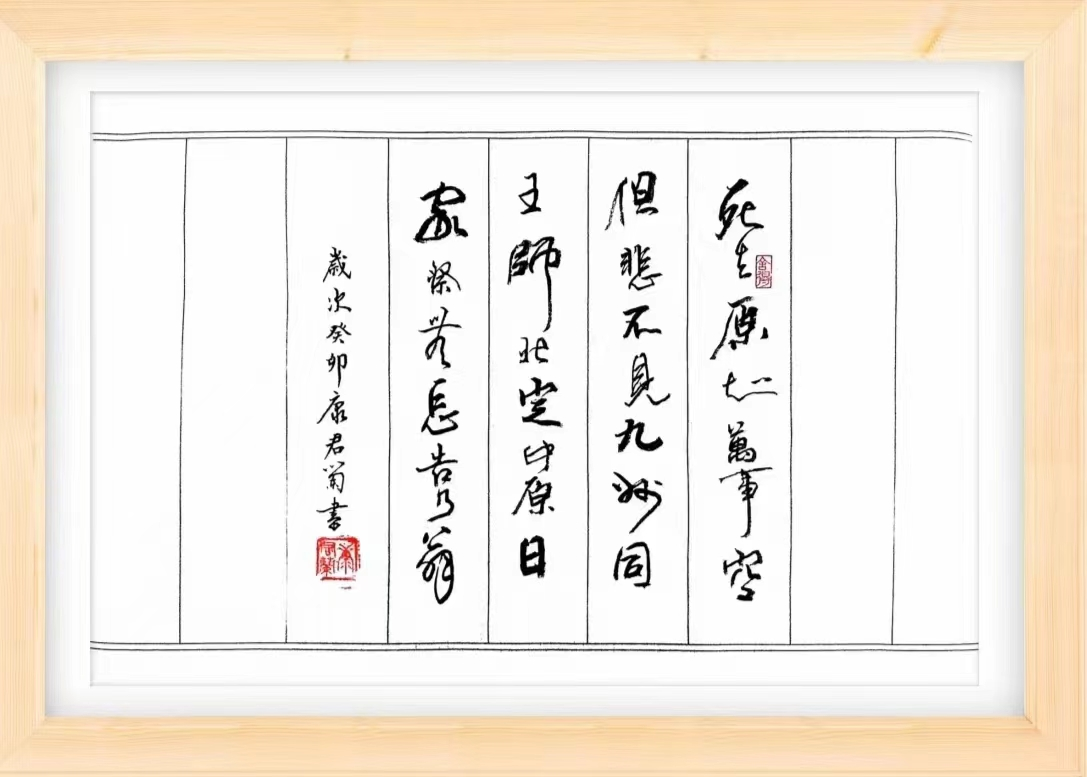 死去原知萬事空
舍得
但悲不見九州同
王師北定中原日
家祭無忘告乃翁
歲次癸卯康君蘭書
康君蘭